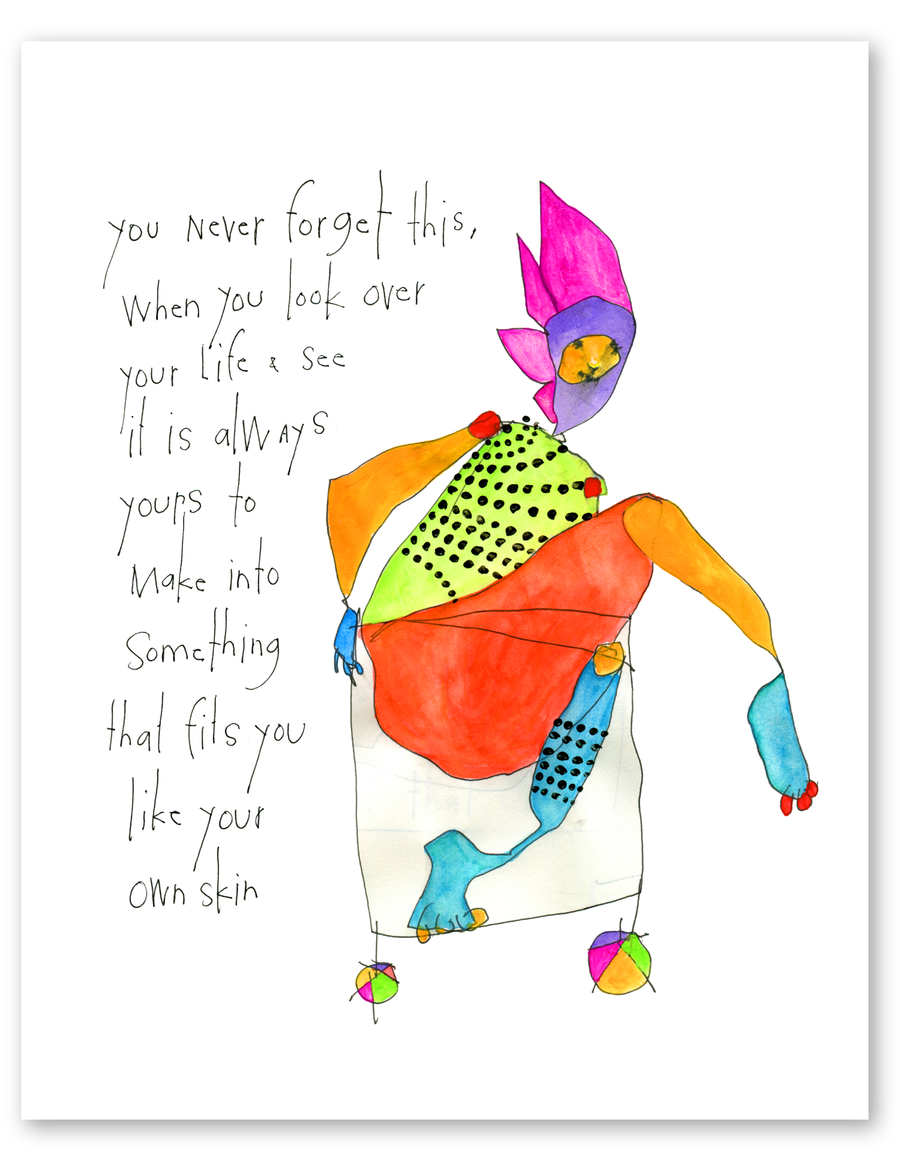 you never forget this,
when you look over
your life & see
it is always
yours to
make into
something
that fits you
like your
own skin